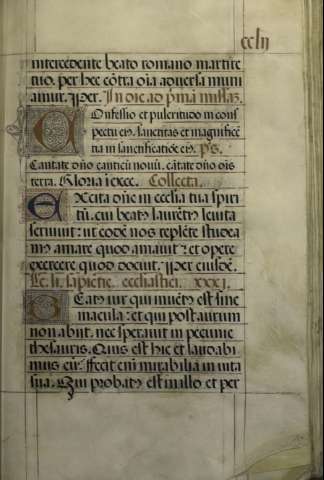 cclij
intercedente beato romano martire
tuo. per hec cõtra oĩa aduersa muni
amur. Per. In die ad p̃mã missaz.
Confessio et pulcritudo in cons
pectu eiꝰ. sanctitas et magnificẽ
tia in sanctificatiõe eiꝰ. p̃s.
Cantate dño canticũ nouũ. cãtate dño oĩs
terra. Gloria i excc. Collecta.
Excita dñe in ecclia tua spiri
tũ. cui beatꝰ laurẽtiꝰ leuita
seruiuit: ut eodẽ nos replete studea
mꝰ amare quod amauit: et opere
exercere quod docuit. Per eiusdẽ.
Lc̃. li. sapietie. ecclesiastici. xxxj.
Beatꝰ uir qui inuẽtꝰ est sine
macula: et qui post aurum
non abiit. nec sperauit in pecunie
thesauris. Quis est hic et laudabi
mus eũ: Fecit eni mirabilia in uita
sua. Qui probatꝰ est in illo et per